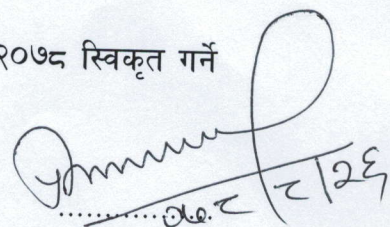 २०७८ स्विकृत गर्ने
..............
०७८/८/२६